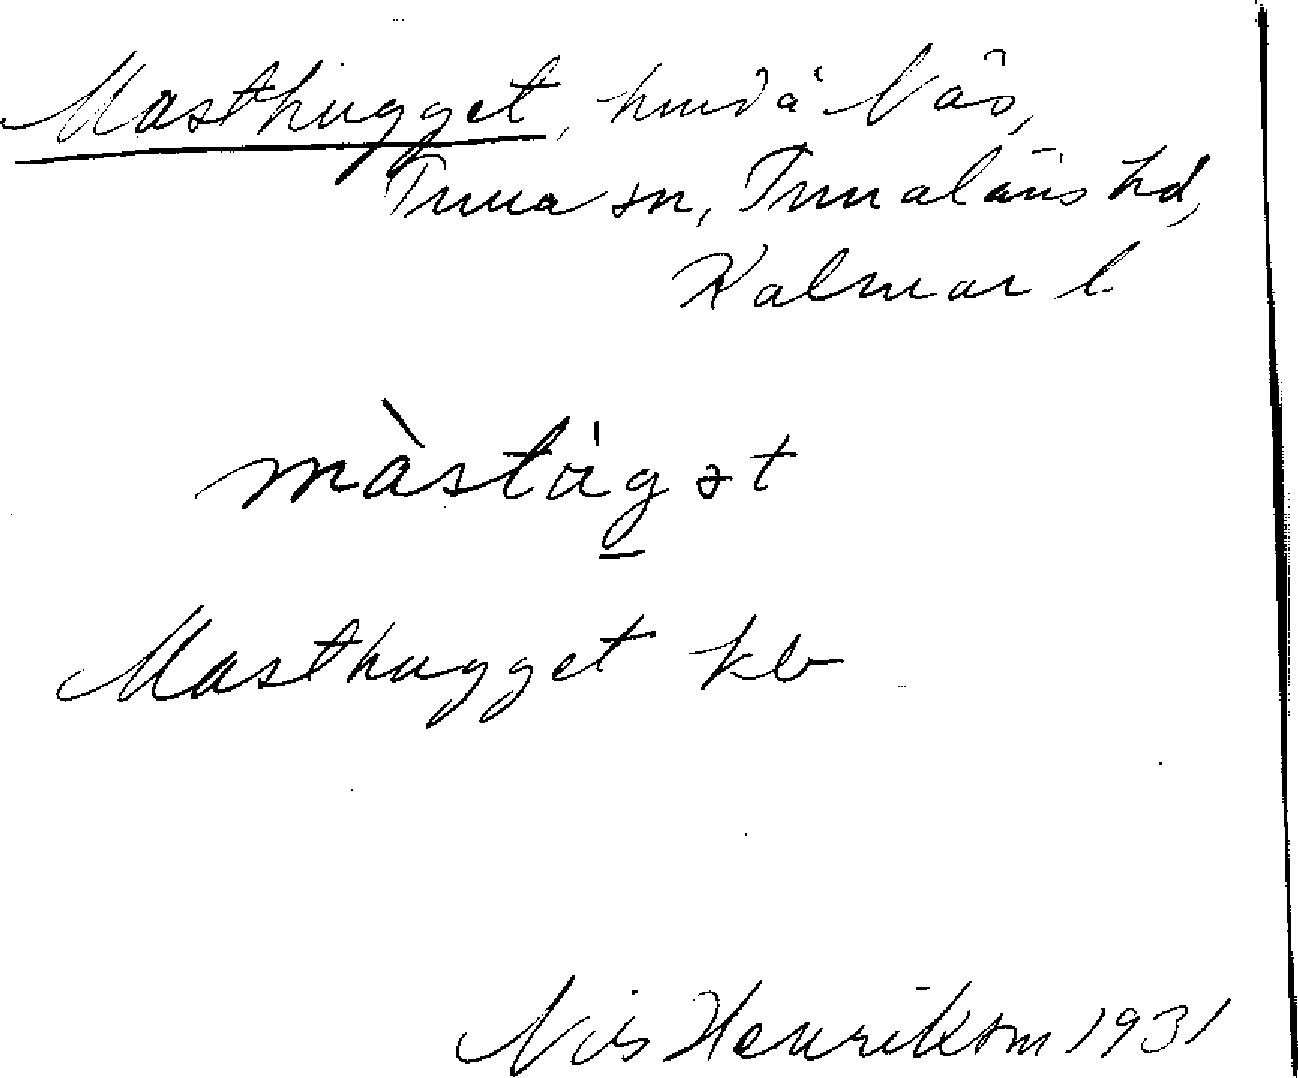 Masthugget, hus å Näs,
Tuna sn, Tunaläns hd,
Kalmar l.
màstu̇gət
Masthugget kb
Nils Henrikson 1931